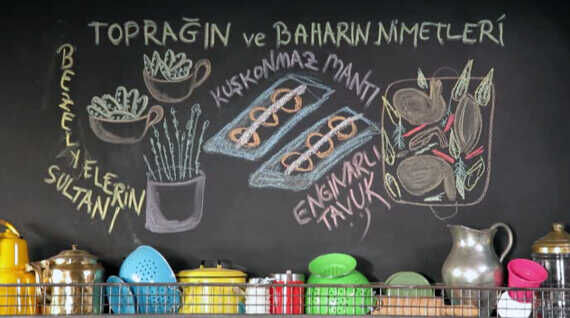 TOPRAĞIN ve BAHARIN NİMETLERİ
BEZELYELERİN
SULTANI
KUŞKONMAZ MANTI
ENGİNARLI
TAVUK